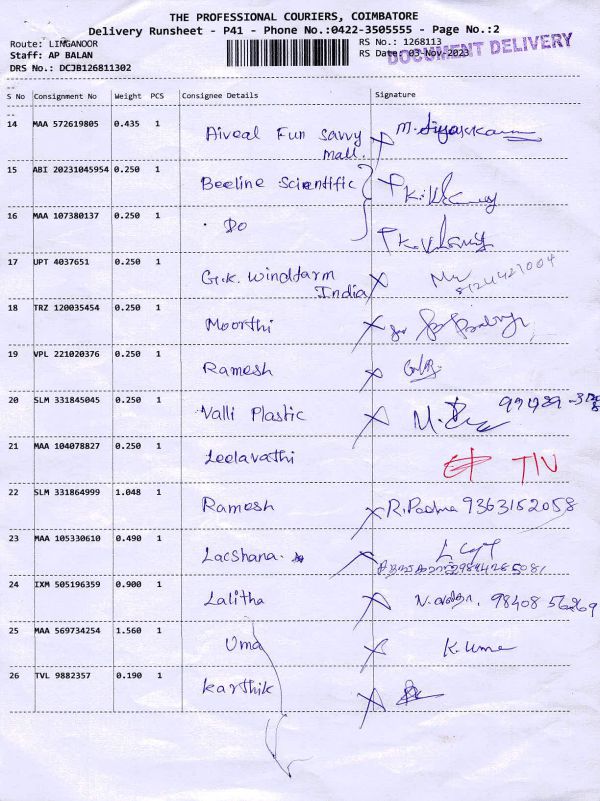 THE PROFESSIONAL COURIERS, COIMBATORE
Delivery Runsheet - P41 - Phone No.:0422-3505555 - Page No.:2
Route: LINGANOOR
Staff: AP BALAN
DRS No.: DCJB126811302
RS No.: 1268113
RS Date: 03-Nov-2023
DOCUMENT DELIVERY
S No Consignment No Weight PCS Consignee Details Signature
14 MAA 572619805 0.435 1 Fun Savvy
Mall.
15 ABI 20231045954 0.250 1 Beeline Scientific
16 MAA 107380137 0.250 1 Do
17 UPT 4037651 0.250 1 G.K. Windfarm
India
18 TRZ 120035454 0.250 1 Moorthi
19 VPL 221020376 0.250 1 Ramesh
20 SLM 331845045 0.250 1 Valli Plastic
21 MAA 104078827 0.250 1 Leelavathi
22 SLM 331864999 1.048 1 Ramesh R. Padma 9363152058
23 MAA 105330610 0.490 1 Lacshana
24 IXM 505196359 0.900 1 Lalitha 98408 56269
25 MAA 569734254 1.560 1 Uma K. Uma
26 TVL 9882357 0.190 1 Karthik